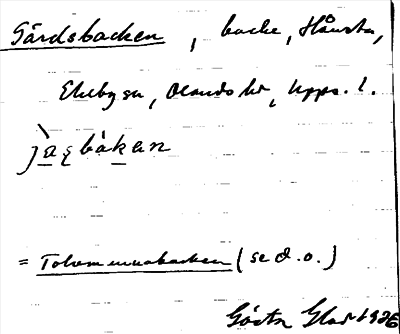 Gärdsbacken, backe, Håvsta,
Ekeby sn, Olands hd, Upps. l.
jàɛbákan
= Tolvmannabacken (se d.o.)
Gösta 1926